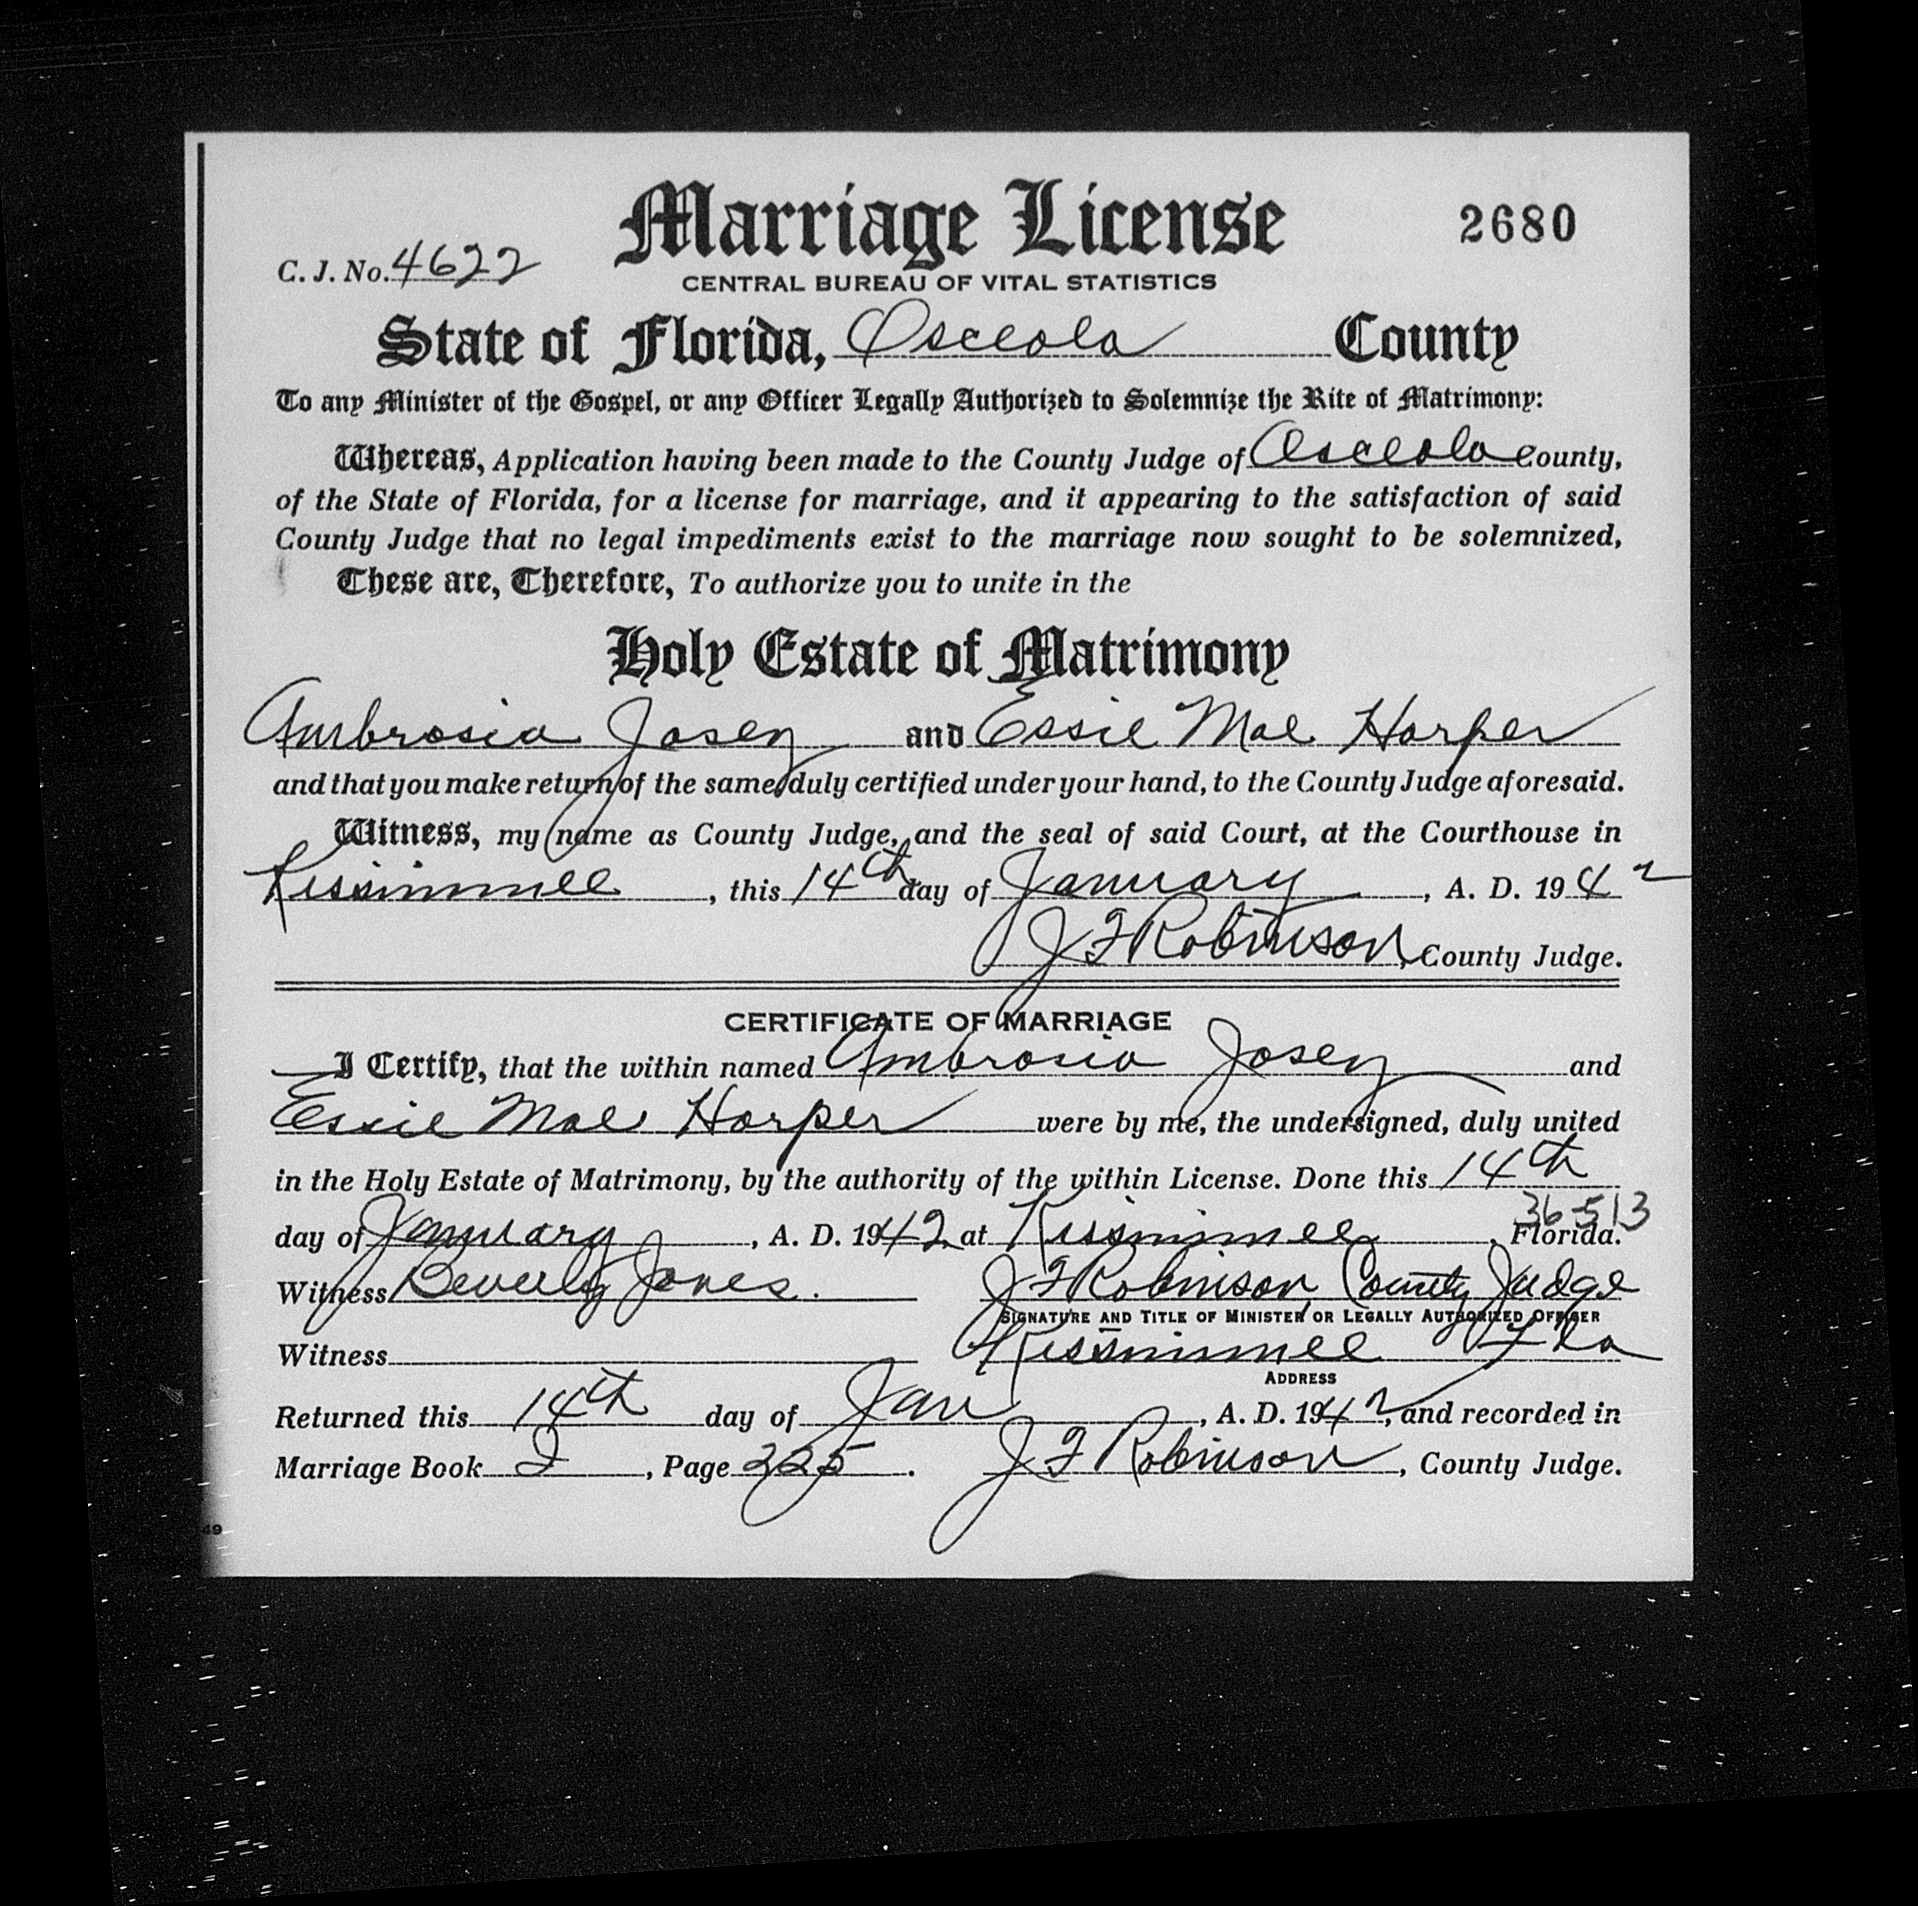 Marriage License
2680
C. J. No. 4622
CENTRAL BUREAU OF VITAL STATISTICS
State of Florida, Osceola County
To any Minister of the Gospel, or any Officer Legally Authorized to Solemnize the Rite of Matrimony:
Whereas, Application having been made to the County Judge of Osceola County,
of the State of Florida, for a license for marriage, and it appearing to the satisfaction of said
County Judge that no legal impediments exist to the marriage now sought to be solemnized,
These are, Therefore, To authorize you to unite in the
Holy Estate of Matrimony
Ambrosia Josey and Essie Mae Harper
and that you make return of the same, duly certified under your hand, to the County Judge aforesaid.
Witness, my name as County Judge, and the seal of said Court, at the Courthouse in
Kissimmee, this 14th day of January, A. D. 1942
J F Robinson, County Judge.
CERTIFICATE OF MARRIAGE
I Certify, that the within named Ambrosia Josey and
Essie Mae Harper were by me, the undersigned, duly united
in the Holy Estate of Matrimony, by the authority of the within License. Done this 14th
36-513
day of January, A. D. 1942 at Kissimmee, Florida.
Witness Beverly Jones. J F Robinson County Judge
SIGNATURE AND TITLE OF MINISTER OR LEGALLY AUTHORIZED OFFICER
Witness Kissimmee Fla
ADDRESS
Returned this 14th day of Jan, A. D. 1942, and recorded in
Marriage Book I, Page 225. J F Robinson, County Judge.
49